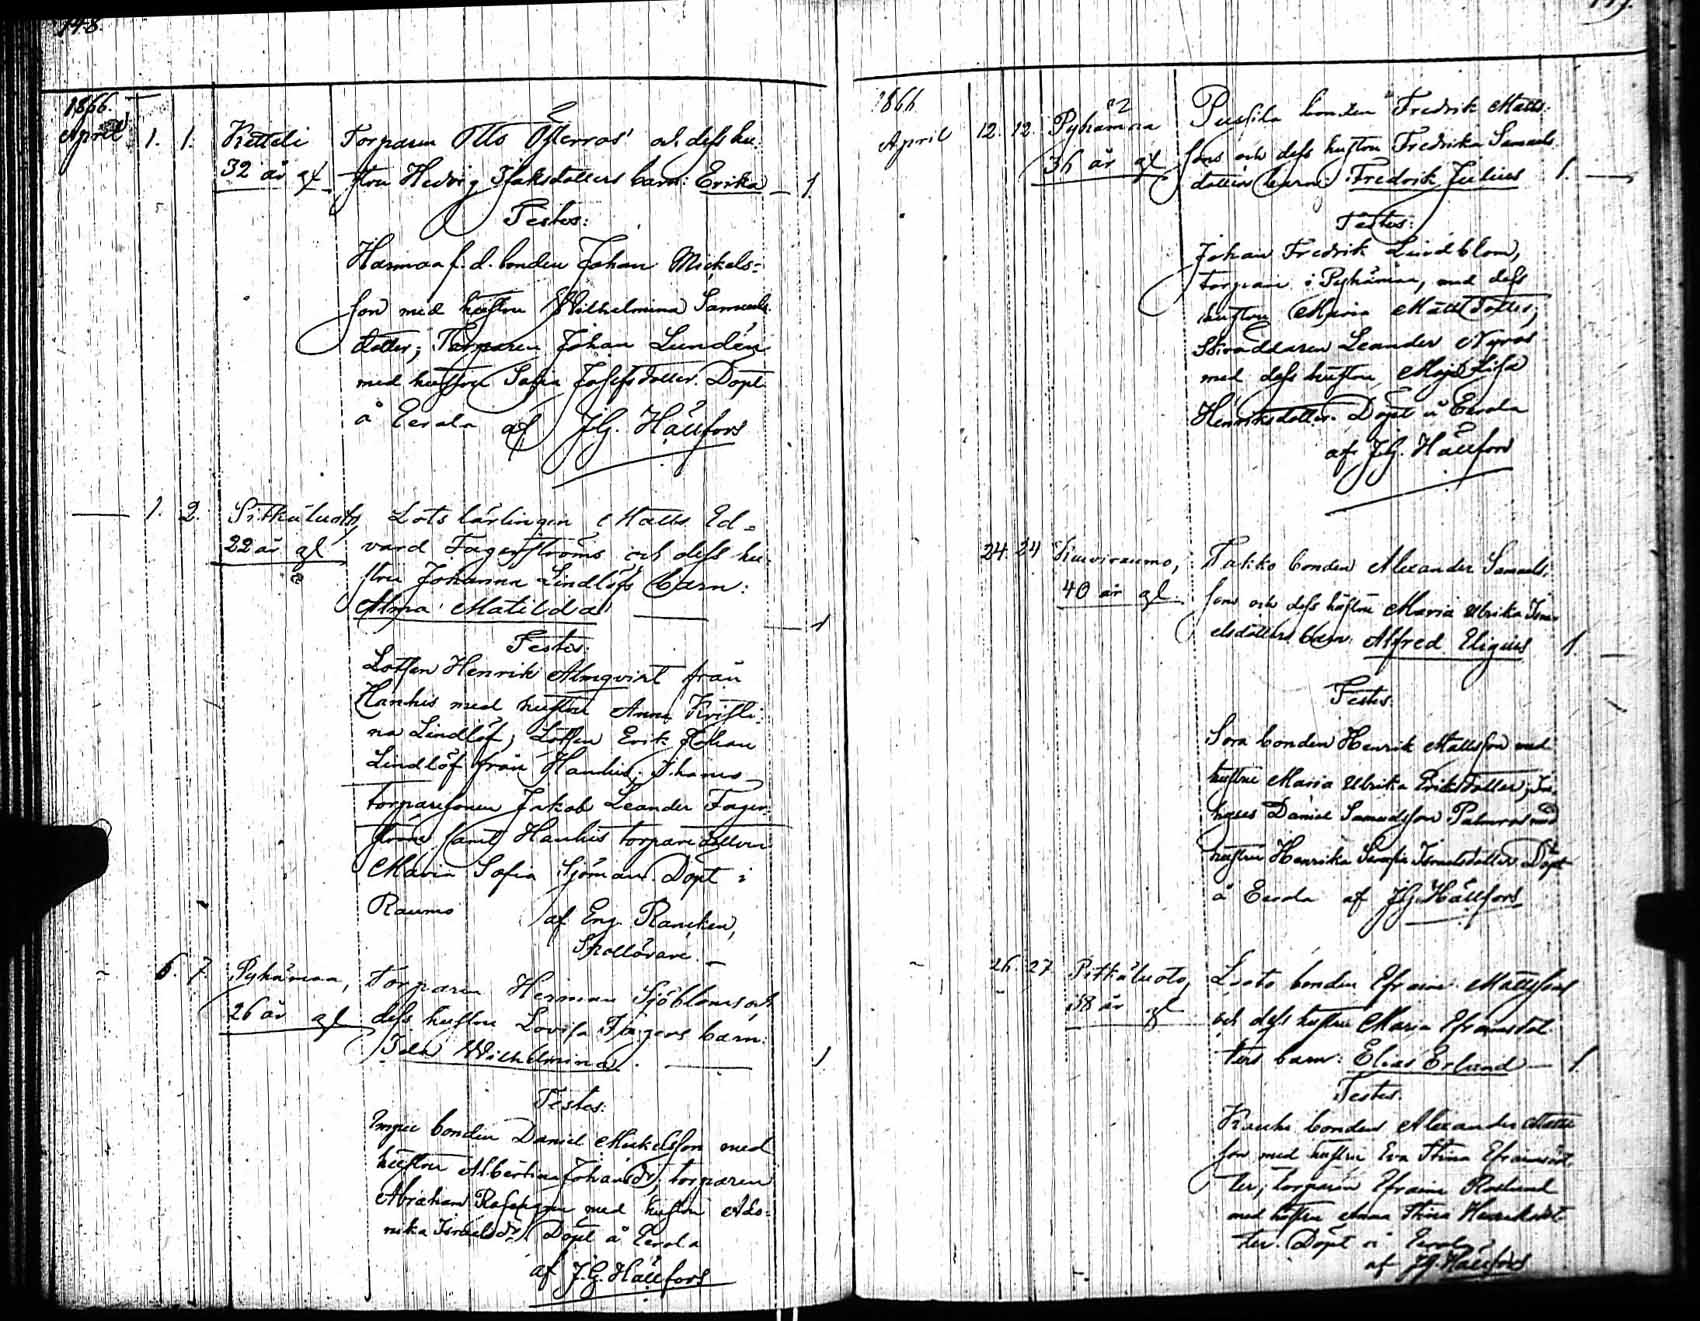 148.
1866.
April 1. 1. Ketteli Torparen Otto Österros' och dess hu-
32 år gl stru Hedvig Isaksdotters barn: Erika — 1.
Testes:
f. d. bonden Johan Mickels-
son med hustru Wilhelmina Samuels
dotter; Torparen Johan Lundén
med hustru Sofia Josefsdotter. Döpt
å Eerola af J.G. Hällfors
— 1. 2. Pitkäluoto, Lotslärlingen Matts Ed-
22 år gl vard Fagerströms och dess hu-
stru Johanna Lindlöfs barn:
Alma Matilda — 1
Testes:
Lotsen Henrik Almqvist från
Hanhis med hustru Anna Kristi-
na Lindlöf; Lotsen Erik Johan
Lindlöf från Hanhis;
torparesonen Jakob Leander Fager-
ström samt Hanhis torparedottern
Maria Sofia Sjöman. Döpt i
Raumo af Eng. Rancken,
Skollärare.
6. 7. Pyhämaa, Torparen Herman Sjöbloms och
26 år gl dess hustru Lovisa Fageros barn:
Ida Wilhelmina — 1
Testes:
bonden Daniel Mickelsson med
hustru Albertina Johansdr, torparen
Abraham med hustru
Israelsdr. Döpt å Eerola
af J.G. Hällfors
149.
1866
April 12. 12. Pyhämaa bonden Fredrik Matts-
36 år gl sons och dess hustru Fredrika Samuels
dotters barn: Fredrik Julius 1. —
Testes:
Johan Fredrik Lindblom,
torpare i Pyhämaa, med dess
hustru Maria Mattsdotter,
Skräddaren Leander Nyroos
med dess hustru Maja Lisa
Henriksdotter. Döpt å Eerola
af J.G. Hällfors
24. 24 Kuuviraumo, Takko bonden Alexander Samuels-
40 år gl. sons och dess hustru Maria Ulrika Isra-
elsdotters barn: Alfred Eligius 1. —
Testes:
Sora bonden Henrik Mattsson med
hustru Maria Ulrika Eriksdotter;
Daniel Samuelsson Palmroos med
hustru Henrika Serafia Israelsdotter. Döpt
å Eerola af J.G. Hällfors
26. 27. Pitkäluoto, bonden Efraim Mattssons
38 år gl och dess hustru Maria Efraimsdot
ters barn: Elias Erland — 1
Testes.
bonden Alexander Matts
son med hustru Eva Stina Efraimsdot
ter; torparen Efraim Roslund
med hustru Anna Stina Henriksdot
ter. Döpt å Eerola
af J.G. Hällfors